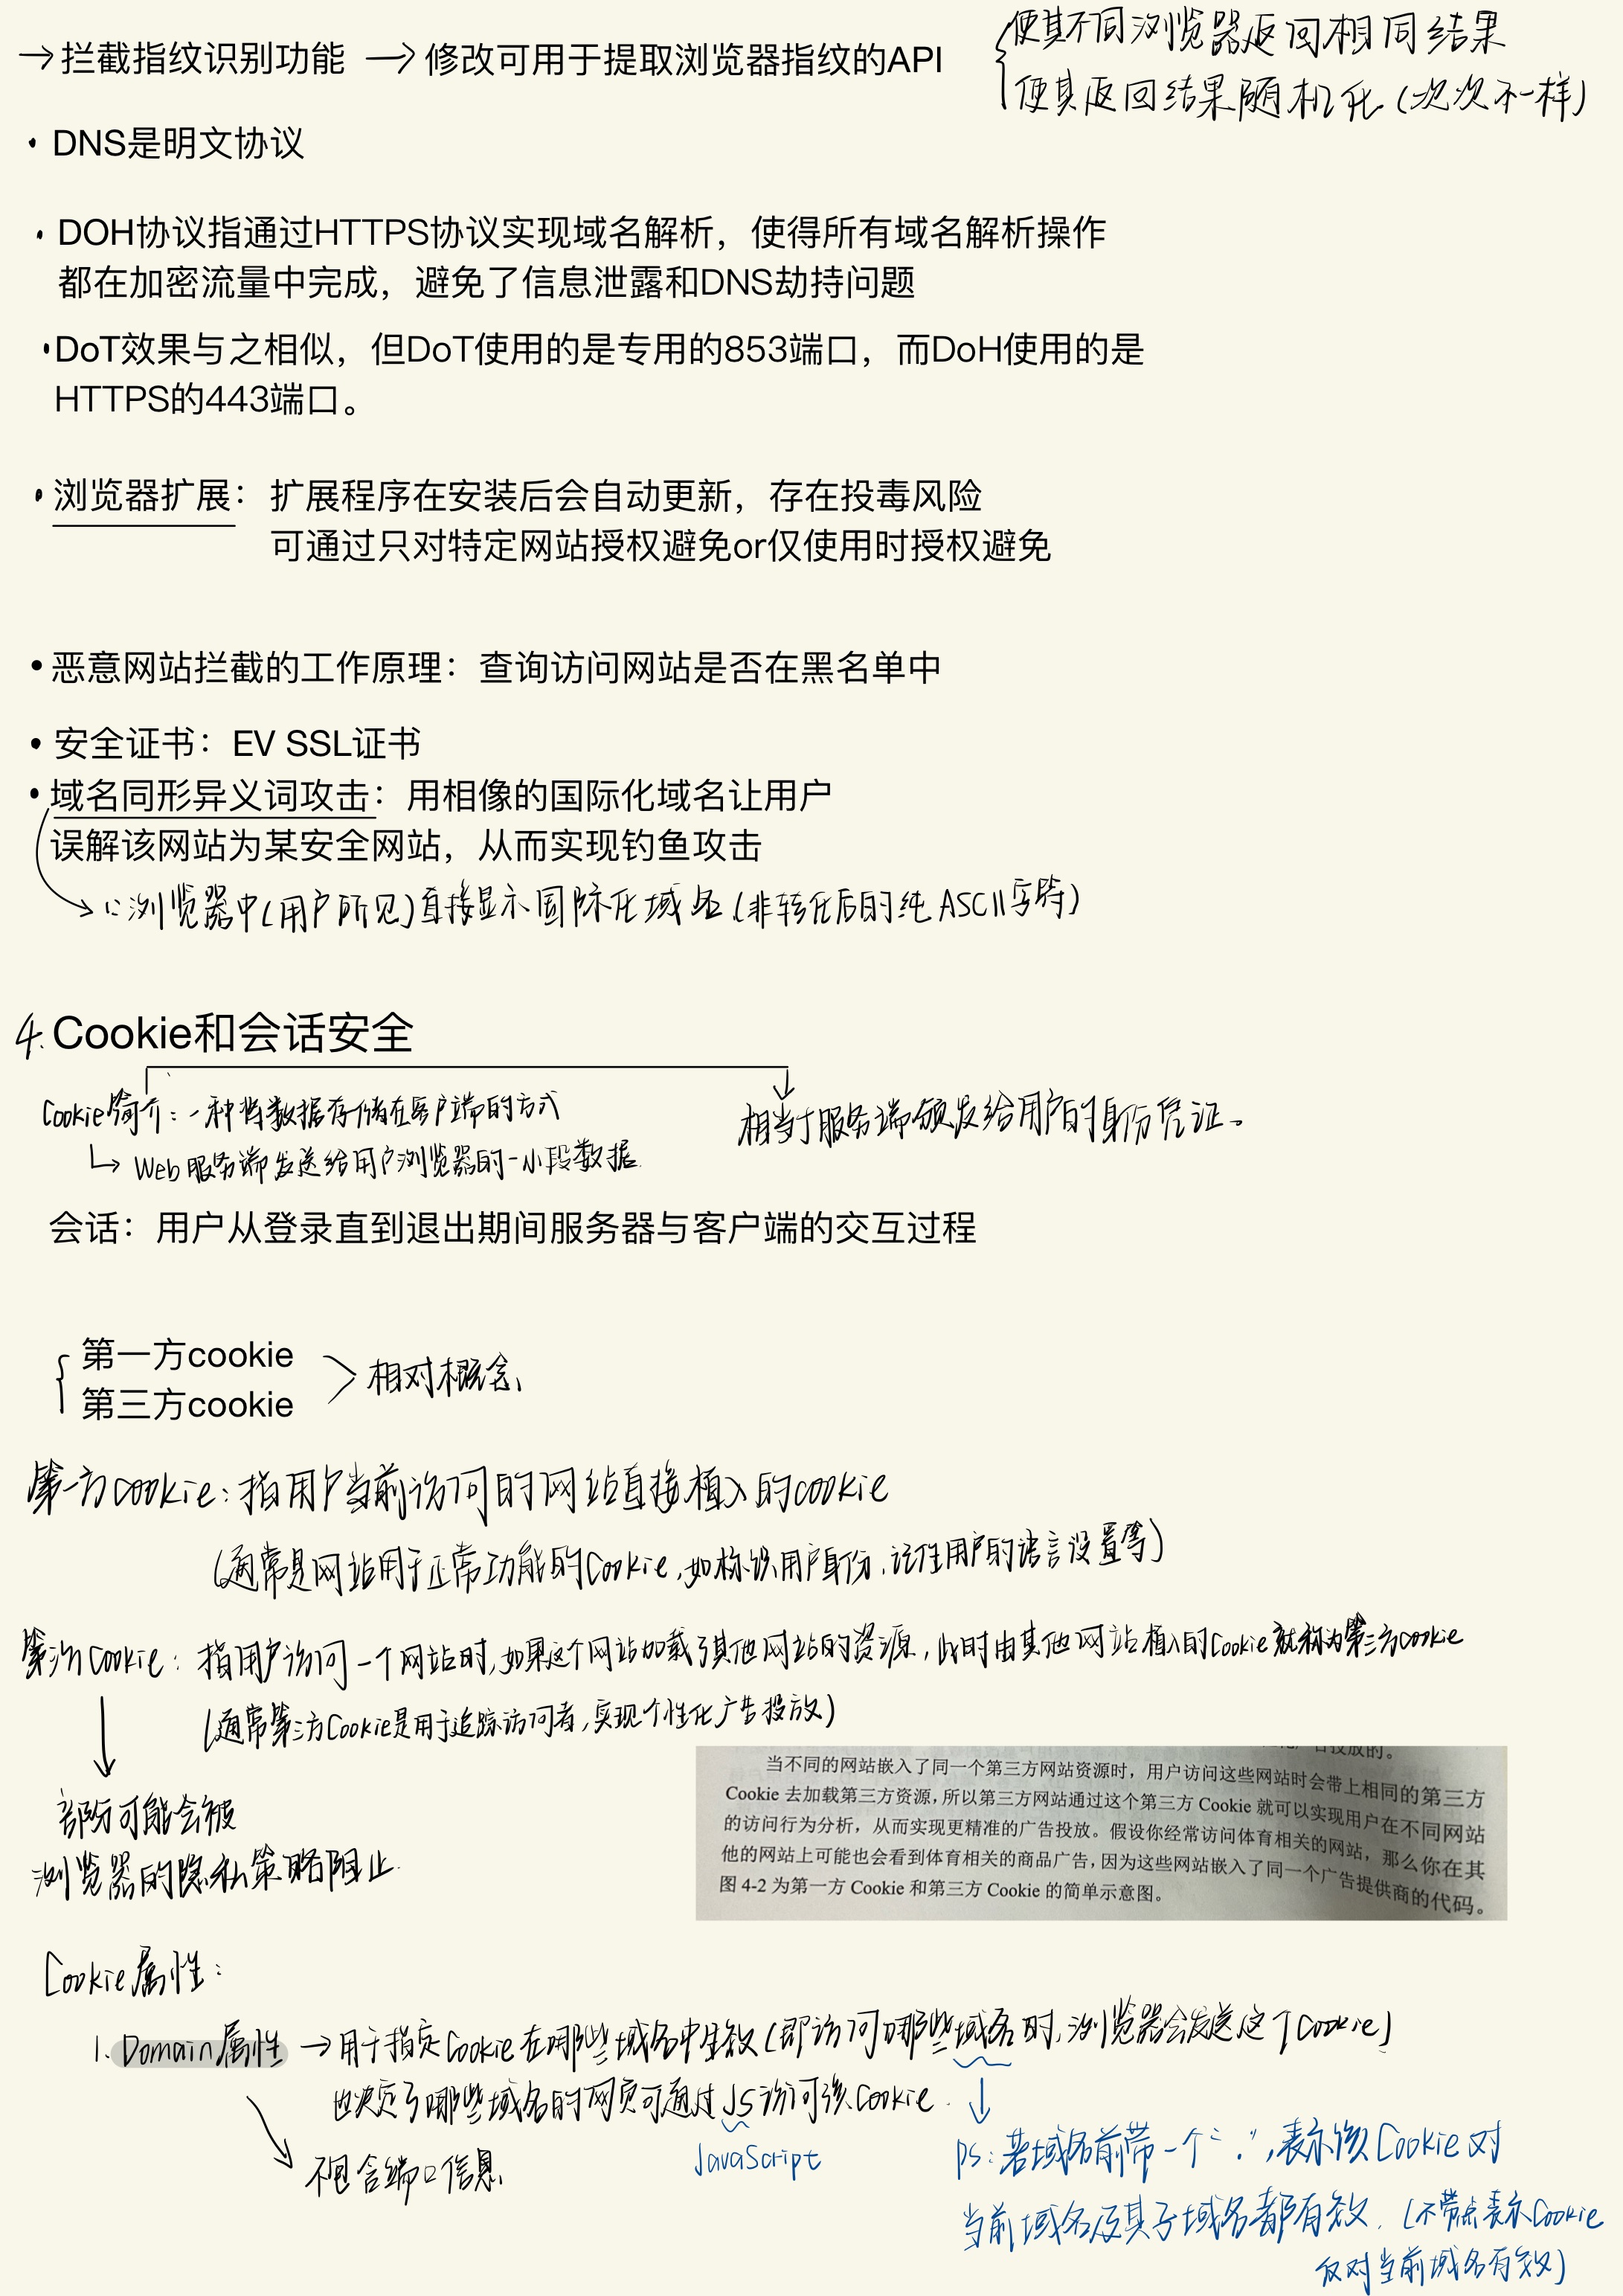 →拦截指纹识别功能 →修改可用于提取浏览器指纹的API
使其不同浏览器返回相同结果
使其返回结果随机化(次次不一样)
· DNS是明文协议
· DOH协议指通过HTTPS协议实现域名解析，使得所有域名解析操作
都在加密流量中完成，避免了信息泄露和DNS劫持问题
·DoT效果与之相似，但DoT使用的是专用的853端口，而DoH使用的是
HTTPS的443端口。
· 浏览器扩展： 扩展程序在安装后会自动更新，存在投毒风险
可通过只对特定网站授权避免or仅使用时授权避免
• 恶意网站拦截的工作原理：查询访问网站是否在黑名单中
• 安全证书：EV SSL证书
• 域名同形异义词攻击：用相像的国际化域名让用户
误解该网站为某安全网站，从而实现钓鱼攻击
→ ∵浏览器中(用户所见)直接显示国际化域名(非转化后的纯ASCII字符)
4. Cookie和会话安全
Cookie简介：一种将数据存储在客户端的方式
相当于服务端颁发给用户的身份凭证。
↳ Web服务端发送给用户浏览器的一小段数据.
会话：用户从登录直到退出期间服务器与客户端的交互过程
第一方cookie
第三方cookie
相对概念、
第一方cookie：指用户当前访问的网站直接植入的cookie
(通常是网站用于正常功能的Cookie,如标识用户身份、记住用户的语言设置等)
第三方Cookie：指用户访问一个网站时,如果这个网站加载了其他网站的资源，此时由其他网站植入的Cookie就称为第三方cookie
(通常第三方Cookie是用于追踪访问者,实现个性化广告投放)
部分可能会被
浏览器的隐私策略阻止.
告投放的。
当不同的网站嵌入了同一个第三方网站资源时，用户访问这些网站时会带上相同的第三方
Cookie 去加载第三方资源，所以第三方网站通过这个第三方 Cookie 就可以实现用户在不同网站
的访问行为分析，从而实现更精准的广告投放。假设你经常访问体育相关的网站，那么你在其
他的网站上可能也会看到体育相关的商品广告，因为这些网站嵌入了同一个广告提供商的代码。
图 4-2 为第一方 Cookie 和第三方 Cookie 的简单示意图。
Cookie属性：
1. Domain属性 →用于指定Cookie在哪些域名中生效(即访问哪些域名时,浏览器会发送这个Cookie)
也决定了哪些域名的网页可通过JS访问该Cookie.
JavaScript
不包含端口信息
ps：若域名前带一个“.”,表示该Cookie对
当前域名及其子域名都有效.(不带点表示Cookie
仅对当前域名有效)